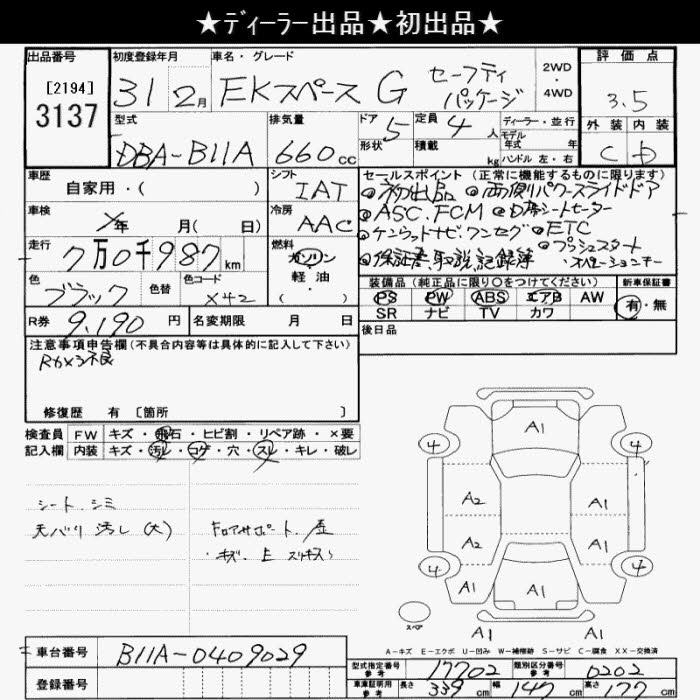 ★ディーラー出品★初出品★
出品番号 初度登録年月 車名・グレード 評価点
[2194] 3137
31 2月 EKスペース G セーフティ パッケージ
2WD ・ 4WD
3.5
型式 排気量 ドア 形状 定員 積載 ディーラー・並行 外装 内装
DBA-B11A 660cc 5 4人 kg
モデル年式 年
ハンドル 左・右
C D
車歴 シフト セールスポイント (正常に機能するものに限ります)
自家用・( ) IAT
◎初出品 ◎両側パワースライドドア
車検 冷房
年 月( 日) AAC
◎ASC.FCM
◎ケンウッドナビ.ワンセグ ◎ETC
◎プッシュスタート
走行 燃料
7万0千987km
ガソリン・軽油・( )
◎保証書.取説.記録簿
色 色替 色コード
ブラック X42
装備品 (純正品に限り○をつけてください) 新車保証書
PS PW ABS エアB AW 有・無
SR ナビ TV カワ
R券 9,190円 名変期限 月 日
後日品
注意事項申告欄(不具合内容等は具体的に記入して下さい)
Rカメラ不良
修復歴 有 [箇所 ]
検査員 FW キズ・飛石・ヒビ割・リペア跡・×要
記入欄 内装 キズ・汚れ・コゲ・穴・スレ・キレ・破し
シート.シミ
天バリ 汚し(大)
・キズ.
A1
4 4
A2 A1
A2 A1
4 4
A1 A1 A1
スペア
A1 A1
A-キズ E-エクボ U-凹み W-補修跡 S-サビ C-腐食 XX-交換済
車台番号 B11A-0409029
登録番号
型式指定番号 参考 17702 類別区分番号 参考 0202
車庫証明用 参考 長さ 339cm 幅 147cm 高さ 177cm